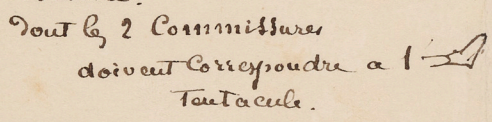 dont les 2 Commissures
doivent Correspondre a 1
Tentacule.